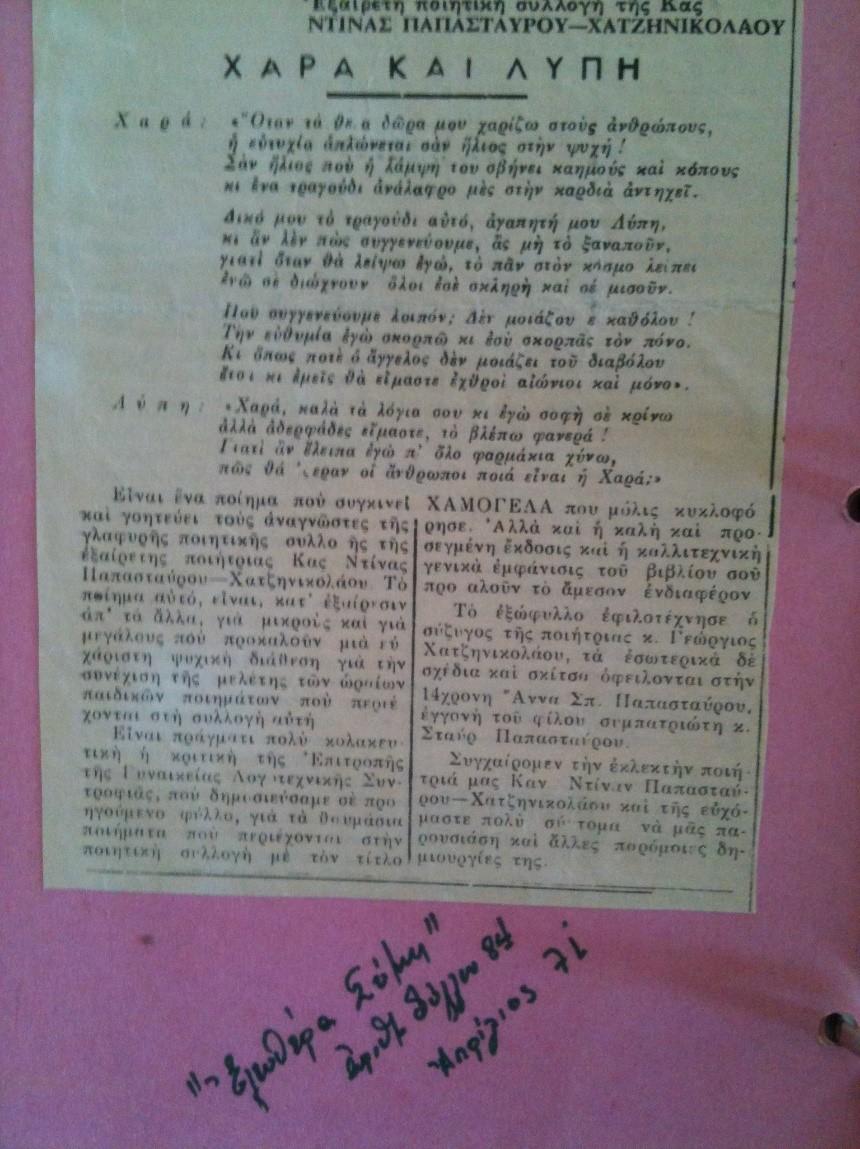 Ἐξαίρετη ποιητική συλλογή τῆς Κας
ΝΤΙΝΑΣ ΠΑΠΑΣΤΑΥΡΟΥ—ΧΑΤΖΗΝΙΚΟΛΑΟΥ
ΧΑΡΑ ΚΑΙ ΛΥΠΗ
Χαρά: «Ὅταν τά θε α δῶρα μου χαρίζω στούς ἀνθρώπους,
ἡ εὐτυχία ἁπλώνεται σάν ἥλιος στήν ψυχή!
Σάν ἥλιος πού ἡ λάμψη του σβήνει καημούς καί κόπους
κι ἕνα τραγούδι ἀνάλαφρο μές στήν καρδιά ἀντηχεῖ.
Δικό μου τό τραγούδι αὐτό, ἀγαπητή μου Λύπη,
κι ἄν λέν πώς συγγενεύουμε, ἄς μή τό ξαναποῦν,
γιατί ὅταν θά λείψω ἐγώ, τό πᾶν στόν κόσμο λείπει
ἐνῶ σέ διώχνουν ὅλοι ἐσέ σκληρή καί σέ μισοῦν.
Πού συγγενεύουμε λοιπόν; Δέν μοιάζου ε καθόλου!
Τήν εὐθυμία ἐγώ σκορπῶ κι ἐσύ σκορπᾶς τόν πόνο.
Κι ὅπως ποτέ ὁ ἄγγελος δέν μοιάζει τοῦ διαβόλου
ἔτσι κι ἐμεῖς θά εἴμαστε ἐχθροί αἰώνιοι καί μόνο».
Λύπη: «Χαρά, καλά τά λόγια σου κι ἐγώ σοφή σέ κρίνω
ἀλλά ἀδερφάδες εἴμαστε, τό βλέπω φανερά!
Γιατί ἄν ἔλειπα ἐγώ π' ὅλο φαρμάκια χύνω,
πῶς θά ξεραν οἱ ἄνθρωποι ποιά εἶναι ἡ Χαρά;»
Εἶναι ἕνα ποίημα πού συγκινεῖ
καί γοητεύει τούς ἀναγνῶστες τῆς
γλαφυρῆς ποιητικῆς συλλο ῆς τῆς
ἐξαίρετης ποιήτριας Κας Ντίνας
Παπασταύρου—Χατζηνικολάου. Τό
ποίημα αὐτό, εἶναι, κατ' ἐξαίρεσιν
ἀπ' τά ἄλλα, γιά μικρούς καί γιά
μεγάλους πού προκαλοῦν μιά εὐ
χάριστη ψυχική διάθεση γιά τήν
συνέχιση τῆς μελέτης τῶν ὡραίων
παιδικῶν ποιημάτων πού περιέ
χονται στή συλλογή αὐτή
Εἶναι πράγματι πολύ κολακευ-
τική ἡ κριτική τῆς Ἐπιτροπῆς
τῆς Γυναικείας Λογοτεχνικῆς Συν-
τροφιᾶς, πού δημοσιεύσαμε σέ προ
ηγούμενο φύλλο, γιά τά θαυμάσια
ποιήματα πού περιέχονται στήν
ποιητική συλλογή μέ τόν τίτλο
ΧΑΜΟΓΕΛΑ που μόλις κυκλοφό
ρησε. Ἀλλά καί ἡ καλή καί προ-
σεγμένη ἔκδοσις καί ἡ καλλιτεχνική
γενικά ἐμφάνισις τοῦ βιβλίου σοῦ
προ αλοῦν τό ἄμεσον ἐνδιαφέρον
Τό ἐξώφυλλο ἐφιλοτέχνησε ὁ
σύζυγος τῆς ποιήτριας κ. Γεώργιος
Χατζηνικολάου, τά ἐσωτερικά δέ
σχέδια καί σκίτσα ὀφείλονται στήν
14χρονη Ἄννα Σπ. Παπασταύρου,
ἐγγονή τοῦ φίλου συμπατριώτη κ.
Σταύρ Παπασταύρου.
Συγχαίρομεν τήν ἐκλεκτήν ποιή-
τριά μας Καν Ντίναν Παπασταύ-
ρου—Χατζηνικολάου καί τῆς εὐχό-
μαστε πολύ σύ τομα νά μᾶς πα-
ρουσιάση καί ἄλλες παρόμοιες δη-
μιουργίες της.
"Ἐλευθέρα Σύμη"
ἀριθμ φύλλου 84
Ἀπρίλιος 71